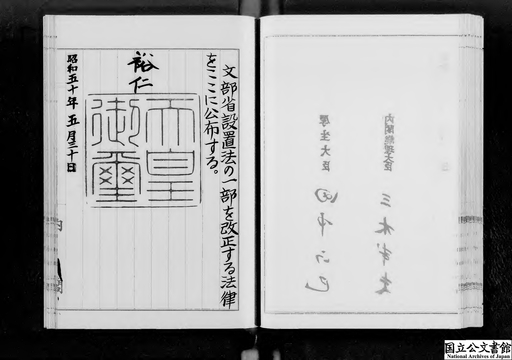 文部省設置法の一部を改正する法律
をここに公布する。
裕仁
天皇
御璽
昭和五十年五月三十日
内閣総理大臣
三木武夫
厚生大臣
田中正巳
国立公文書館
National Archives of Japan